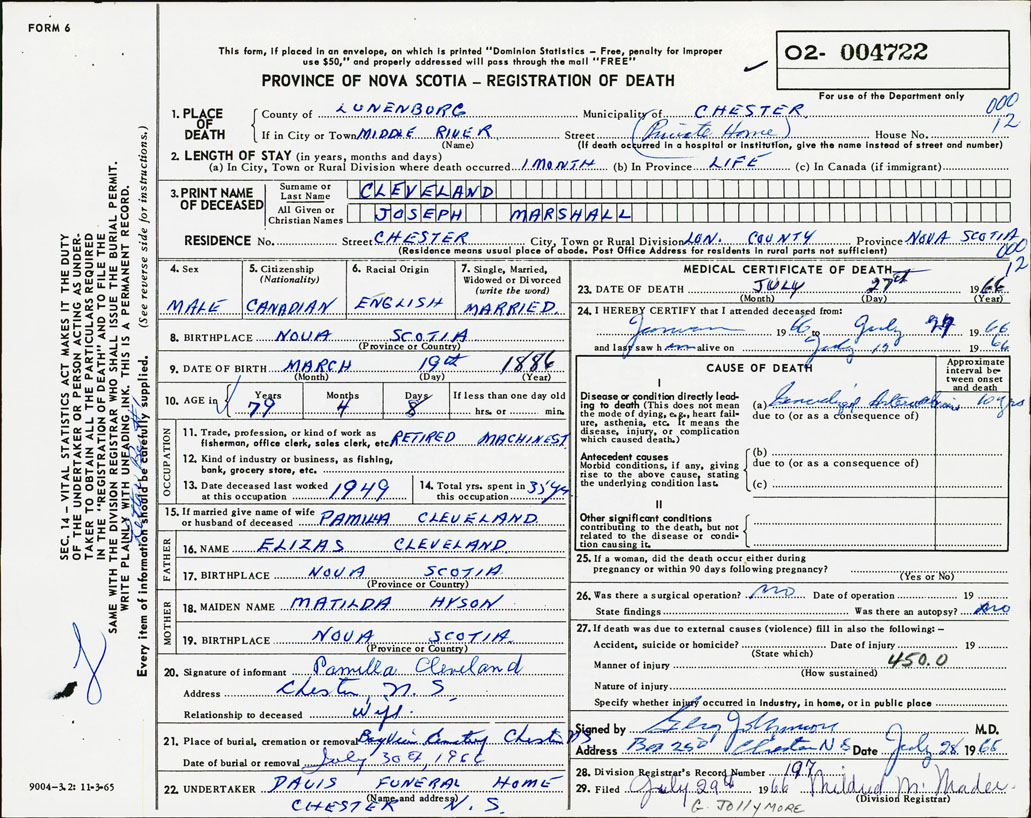 FORM 6
This form, if placed in an envelope, on which is printed "Dominion Statistics – Free, penalty for improper
use $50," and properly addressed will pass through the mail "FREE"
PROVINCE OF NOVA SCOTIA – REGISTRATION OF DEATH
02- 004722
For use of the Department only
000
12
1. PLACE OF DEATH
County of LUNENBURG Municipality of CHESTER
If in City or Town MIDDLE RIVER Street (Private Home) House No.
(Name) (If death occurred in a hospital or institution, give the name instead of street and number)
2. LENGTH OF STAY (in years, months and days)
(a) In City, Town or Rural Division where death occurred 1 MONTH (b) In Province LIFE (c) In Canada (if immigrant)
3. PRINT NAME OF DECEASED
Surname or Last Name CLEVELAND
All Given or Christian Names JOSEPH MARSHALL
RESIDENCE No. Street CHESTER City, Town or Rural Division LUN. COUNTY Province NOVA SCOTIA
(Residence means usual place of abode. Post Office Address for residents in rural parts not sufficient)
000
12
4. Sex
MALE
5. Citizenship (Nationality)
CANADIAN
6. Racial Origin
ENGLISH
7. Single, Married, Widowed or Divorced (write the word)
MARRIED.
8. BIRTHPLACE NOVA SCOTIA
(Province or Country)
9. DATE OF BIRTH MARCH 19th 1886
(Month) (Day) (Year)
10. AGE in
Years Months Days If less than one day old
79 4 8 hrs. or min.
OCCUPATION
11. Trade, profession, or kind of work as
fisherman, office clerk, sales clerk, etc. RETIRED MACHINEST
12. Kind of industry or business, as fishing,
bank, grocery store, etc.
13. Date deceased last worked
at this occupation 1949
14. Total yrs. spent in
this occupation 35 yrs
15. If married give name of wife
or husband of deceased PAMILLA CLEVELAND
FATHER
16. NAME ELIZAS CLEVELAND
17. BIRTHPLACE NOVA SCOTIA
(Province or Country)
MOTHER
18. MAIDEN NAME MATILDA HYSON
19. BIRTHPLACE NOVA SCOTIA
(Province or Country)
20. Signature of informant Pamilla Cleveland
Address Chester, N.S.
Relationship to deceased Wife.
21. Place of burial, cremation or removal Bayview Cemetery Chester NS
Date of burial or removal July 30th, 1966
22. UNDERTAKER DAVIS FUNERAL HOME
(Name and address)
CHESTER N.S.
MEDICAL CERTIFICATE OF DEATH
23. DATE OF DEATH JULY 27th 1966
(Month) (Day) (Year)
24. I HEREBY CERTIFY that I attended deceased from:
1966 to July 27 1966
and last saw him alive on July 19 1966
CAUSE OF DEATH
Approximate interval between onset and death
I
Disease or condition directly leading to death (This does not
mean the mode of dying, e.g., heart failure, asthenia, etc. It means the
disease, injury, or complication
which caused death.)
(a) Generalized Arteriosclerosis 10 yrs
due to (or as a consequence of)
Antecedent causes
Morbid conditions, if any, giving
rise to the above cause, stating
the underlying condition last.
(b)
due to (or as a consequence of)
(c)
II
Other significant conditions
contributing to the death, but not
related to the disease or condition causing it.
25. If a woman, did the death occur either during
pregnancy or within 90 days following pregnancy?
(Yes or No)
26. Was there a surgical operation? no Date of operation 19
State findings Was there an autopsy? no
27. If death was due to external causes (violence) fill in also the following: –
Accident, suicide or homicide? Date of injury 19
(State which)
Manner of injury 450.0
(How sustained)
Nature of injury
Specify whether injury occurred in Industry, in home, or in public place
Signed by M.D.
Address Box 250 Chester N S Date July 28 1966
28. Division Registrar's Record Number 197
29. Filed July 29th 1966 Mildred M. Mader
(Division Registrar)
G. JOLLYMORE
SEC. 14 – VITAL STATISTICS ACT MAKES IT THE DUTY
OF THE UNDERTAKER OR PERSON ACTING AS UNDER-
TAKER TO OBTAIN ALL THE PARTICULARS REQUIRED
IN THE "REGISTRATION OF DEATH" AND TO FILE THE
SAME WITH THE DIVISION REGISTRAR WHO SHALL ISSUE THE BURIAL PERMIT.
WRITE PLAINLY WITH UNFADING INK. THIS IS A PERMANENT RECORD.
Every item of information should be carefully supplied. (See reverse side for instructions.)
9004-3.2: 11-3-65